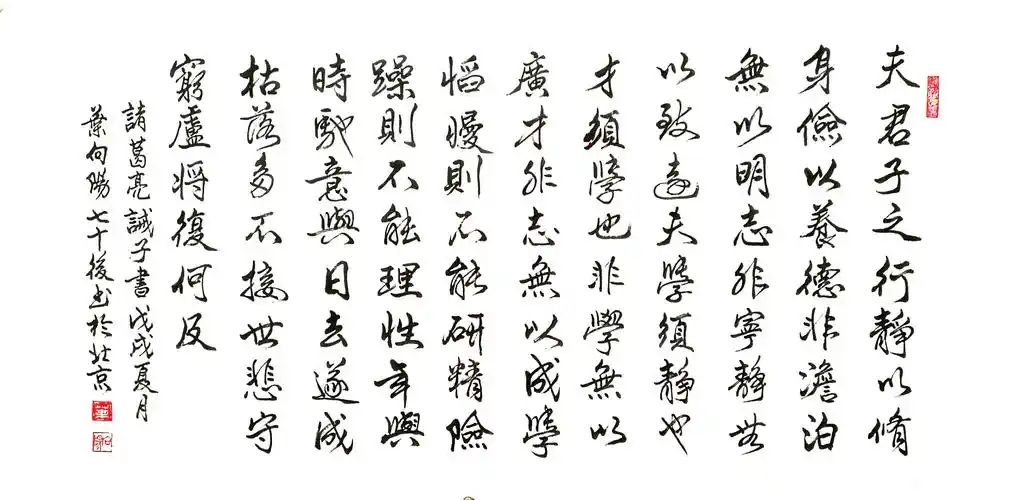 夫君子之行靜以脩
身儉以養德非澹泊
無以明志非寧靜無
以致遠夫學須靜也
才須學也非學無以
廣才非志無以成學
慆慢則不能研精險
躁則不能理性年與
時馳意與日去遂成
枯落多不接世悲守
窮廬將復何及
諸葛亮誡子書戊戌夏月
葉向陽七十後書於北京